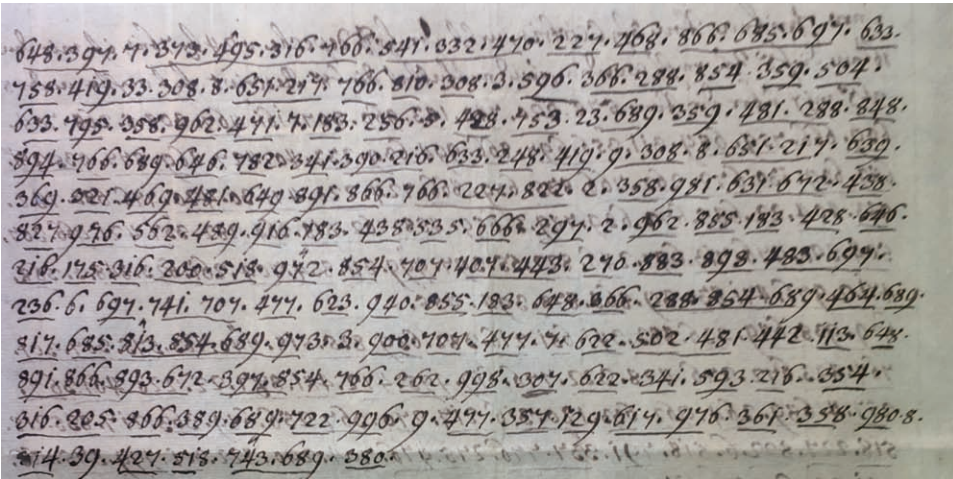 648. 397. 7. 373. 495. 316. 766. 541. 332. 470. 227. 468. 866. 685. 697. 633.
758. 419. 33. 308. 8. 651. 217. 766. 810. 308. 3. 596. 366. 288. 854. 359. 504.
633. 795. 358. 962. 471. 7. 183. 256. 428. 753. 23. 689. 359. 481. 288. 848.
894. 766. 689. 646. 782. 341. 390. 216. 633. 248. 419. 9. 308. 8. 651. 217. 639.
369. 321. 469. 481. 649. 891. 866. 766. 227. 822. 2. 358. 981. 631. 672. 438.
827. 976. 562. 489. 916. 783. 438. 535. 666. 297. 2. 962. 855. 183. 428. 646.
216. 175. 316. 200. 518. 972. 854. 707. 407. 443. 270. 883. 898. 483. 697.
236. 6. 697. 741. 707. 477. 623. 940. 855. 183. 648. 866. 288. 854. 689. 464. 689.
817. 685. 813. 854. 689. 973. 3. 900. 707. 477. 7. 622. 502. 481. 442. 113. 648.
891. 866. 893. 672. 397. 854. 766. 262. 998. 307. 622. 341. 593. 216. 354.
316. 205. 866. 389. 689. 722. 996. 9. 477. 357. 129. 617. 976. 361. 358. 980. 8.
314. 39. 427. 518. 743. 689. 380.